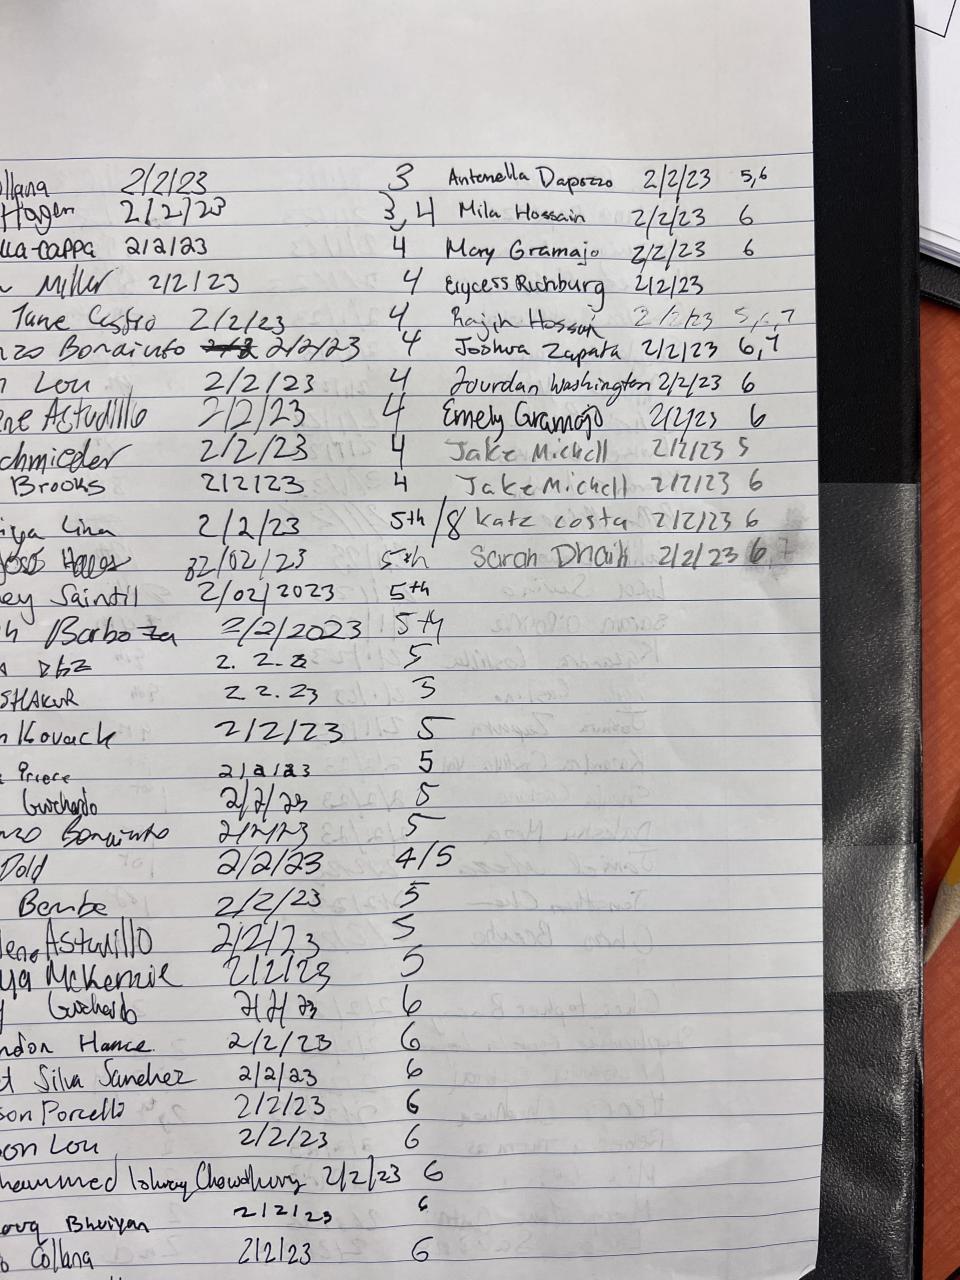 ollana 2/2/23 3 Antonella Dapozzo 2/2/23 5,6
Hagen 2/2/23 3,4 Mila Hossain 2/2/23 6
lla-cappa 2/2/23 4 Mary Gramajo 2/2/23 6
Miller 2/2/23 4 Erycess Richburg 2/2/23
Jane Castro 2/2/23 4 Rajin 2/2/23
nzo Bonainto 2/2/23 4 Joshua Zapata 2/2/23 6,7
n Lou 2/2/23 4 Jourdan Washington 2/2/23 6
ene Astudillo 2/2/23 4 Emely Gramajo 2/2/23 6
chmieder 2/2/23 4 Jake Michell 2/2/23 5
Brooks 2/2/23 4 Jake Michell 2/2/23 6
iya Lina 2/2/23 5th/8 Kate Costa 2/2/23 6
02/02/23 5th Sarah 2/2/23 6,7
ey Saintil 2/02/2023 5th
h Barboza 2/2/2023 5th
2.2.2 5
SHAKUR 2 2.23 5
n Kovack 2/2/23 5
2/2/23 5
Guichardo 2/2/23 5
nzo Bonainto 2/2/23 5
Dold 2/2/23 4/5
Bembe 2/2/23 5
lene Astudillo 2/2/23 5
ya McKenzie 2/2/23 5
Guichardo 2/2/23 6
ndon Hance 2/2/23 6
et Silva Sanchez 2/2/23 6
son Porcello 2/2/23 6
son Lou 2/2/23 6
hammed Chowdhury 2/2/23 6
Bhuiyan 2/2/23 6
o Collana 2/2/23 6